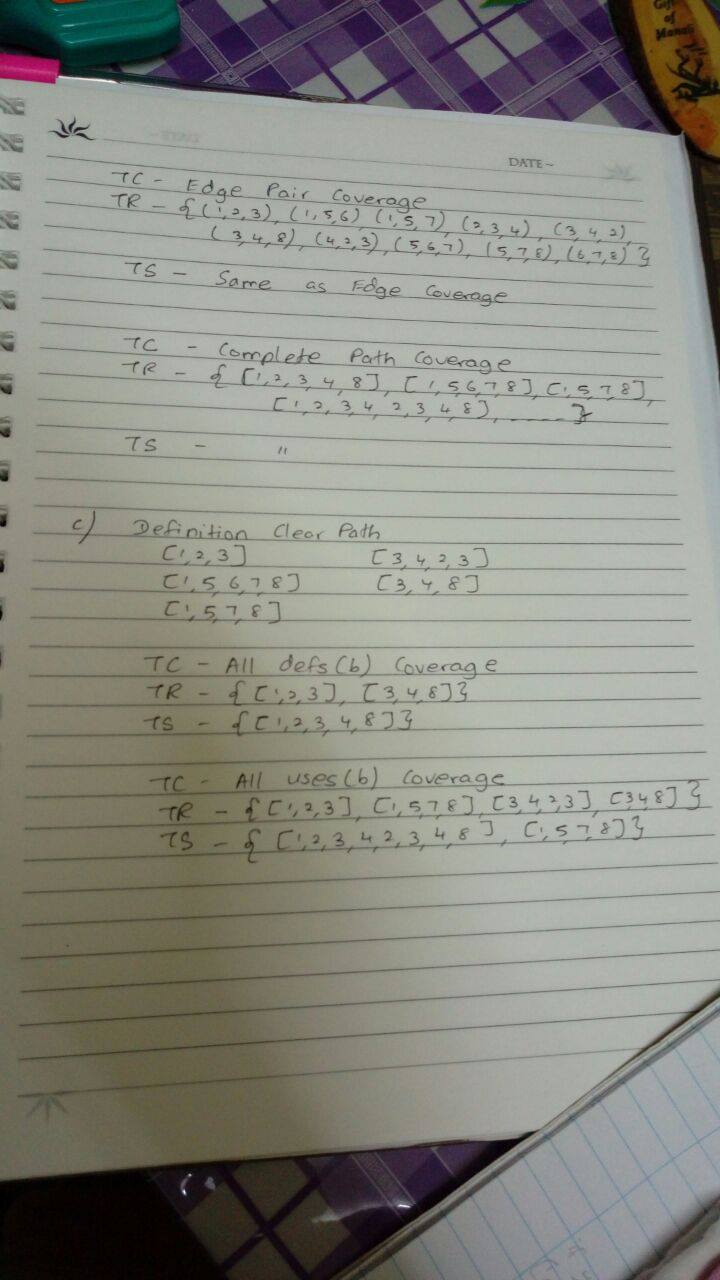 Gift
of
Manali
DATE~
TC - Edge Pair Coverage
TR - {(1,2,3), (1,5,6) (1,5,7), (2,3,4), (3,4,2),
(3,4,8), (4,2,3), (5,6,7), (5,7,8), (6,7,8)}
TS - Same as Edge Coverage
TC - Complete Path Coverage
TR - {[1,2,3,4,8], [1,5,6,7,8], [1,5,7,8],
[1,2,3,4,2,3,4,8], ......}
TS - "
c) Definition Clear Path
[1,2,3] [3,4,2,3]
[1,5,6,7,8] [3,4,8]
[1,5,7,8]
TC - All defs(b) Coverage
TR - {[1,2,3], [3,4,8]}
TS - {[1,2,3,4,8]}
TC - All uses(b) Coverage
TR - {[1,2,3], [1,5,7,8], [3,4,2,3], [3,4,8]}
TS - {[1,2,3,4,2,3,4,8], [1,5,7,8]}